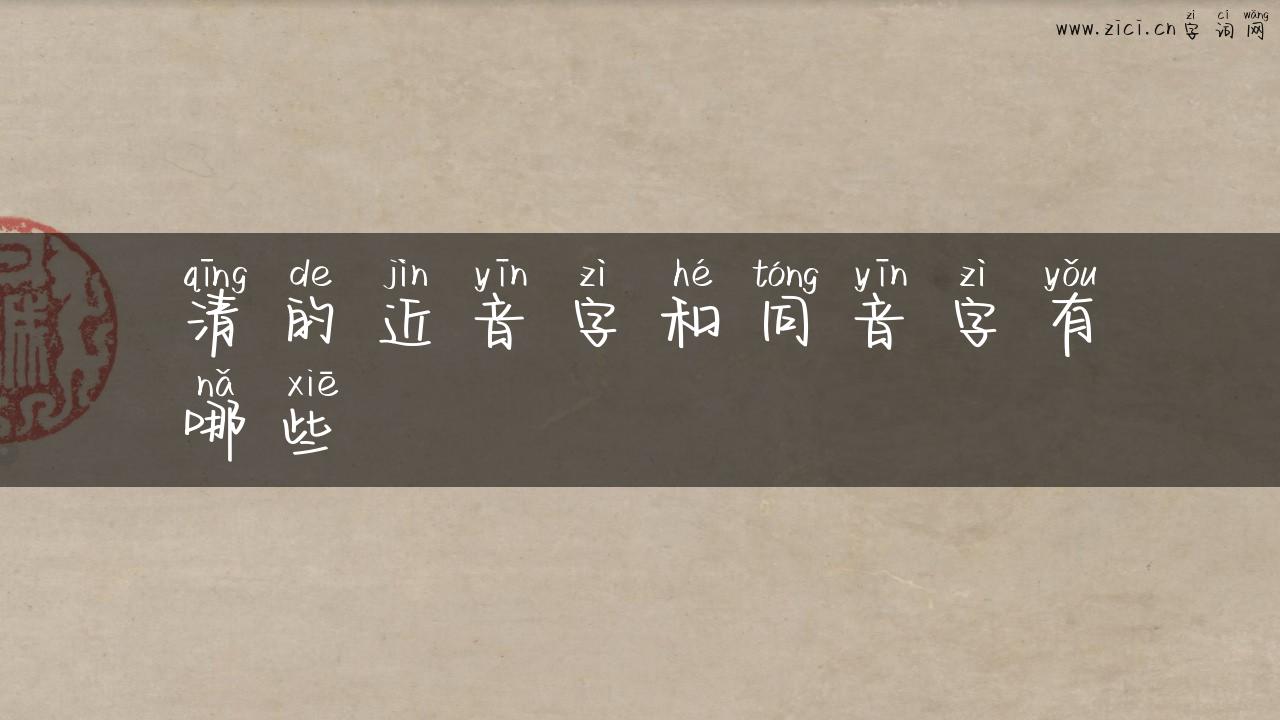 zì cí wǎng
www.zici.cn字词网
qīng de jìn yīn zì hé tóng yīn zì yǒu
清的近音字和同音字有
nǎ xiē
哪些